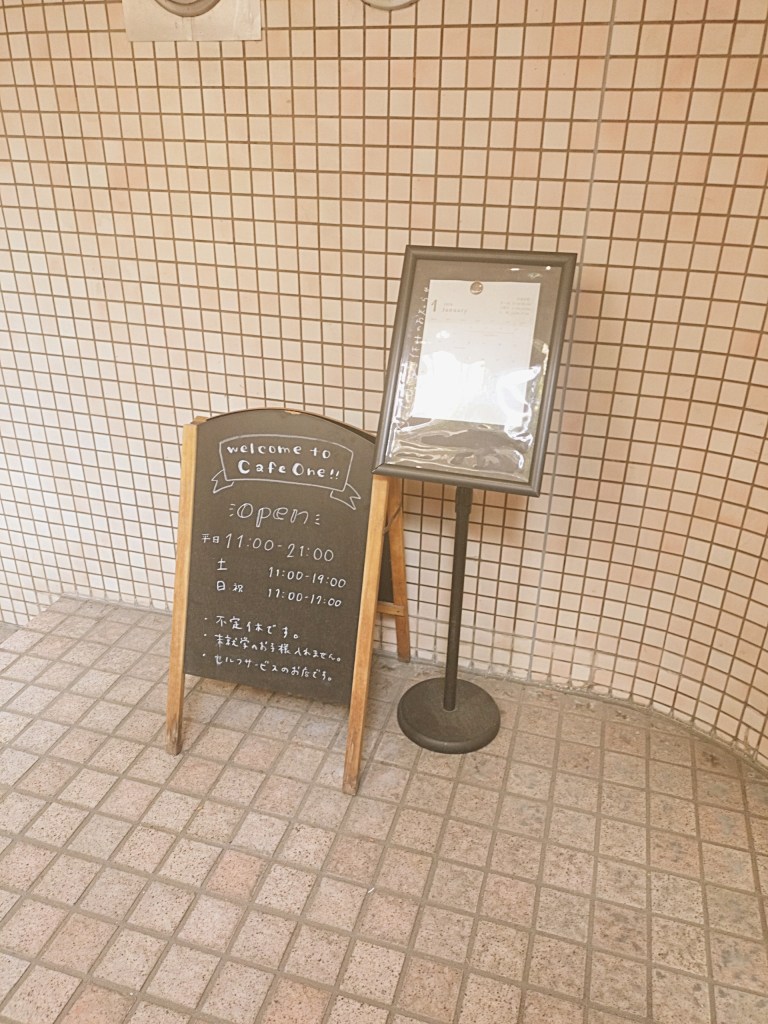 welcome to
Cafe One!!
open
平日 11:00-21:00
土 11:00-19:00
日祝 11:00-17:00
・不定休です。
・未就学のお子様入れません。
・セルフサービスのお店です。
1
January